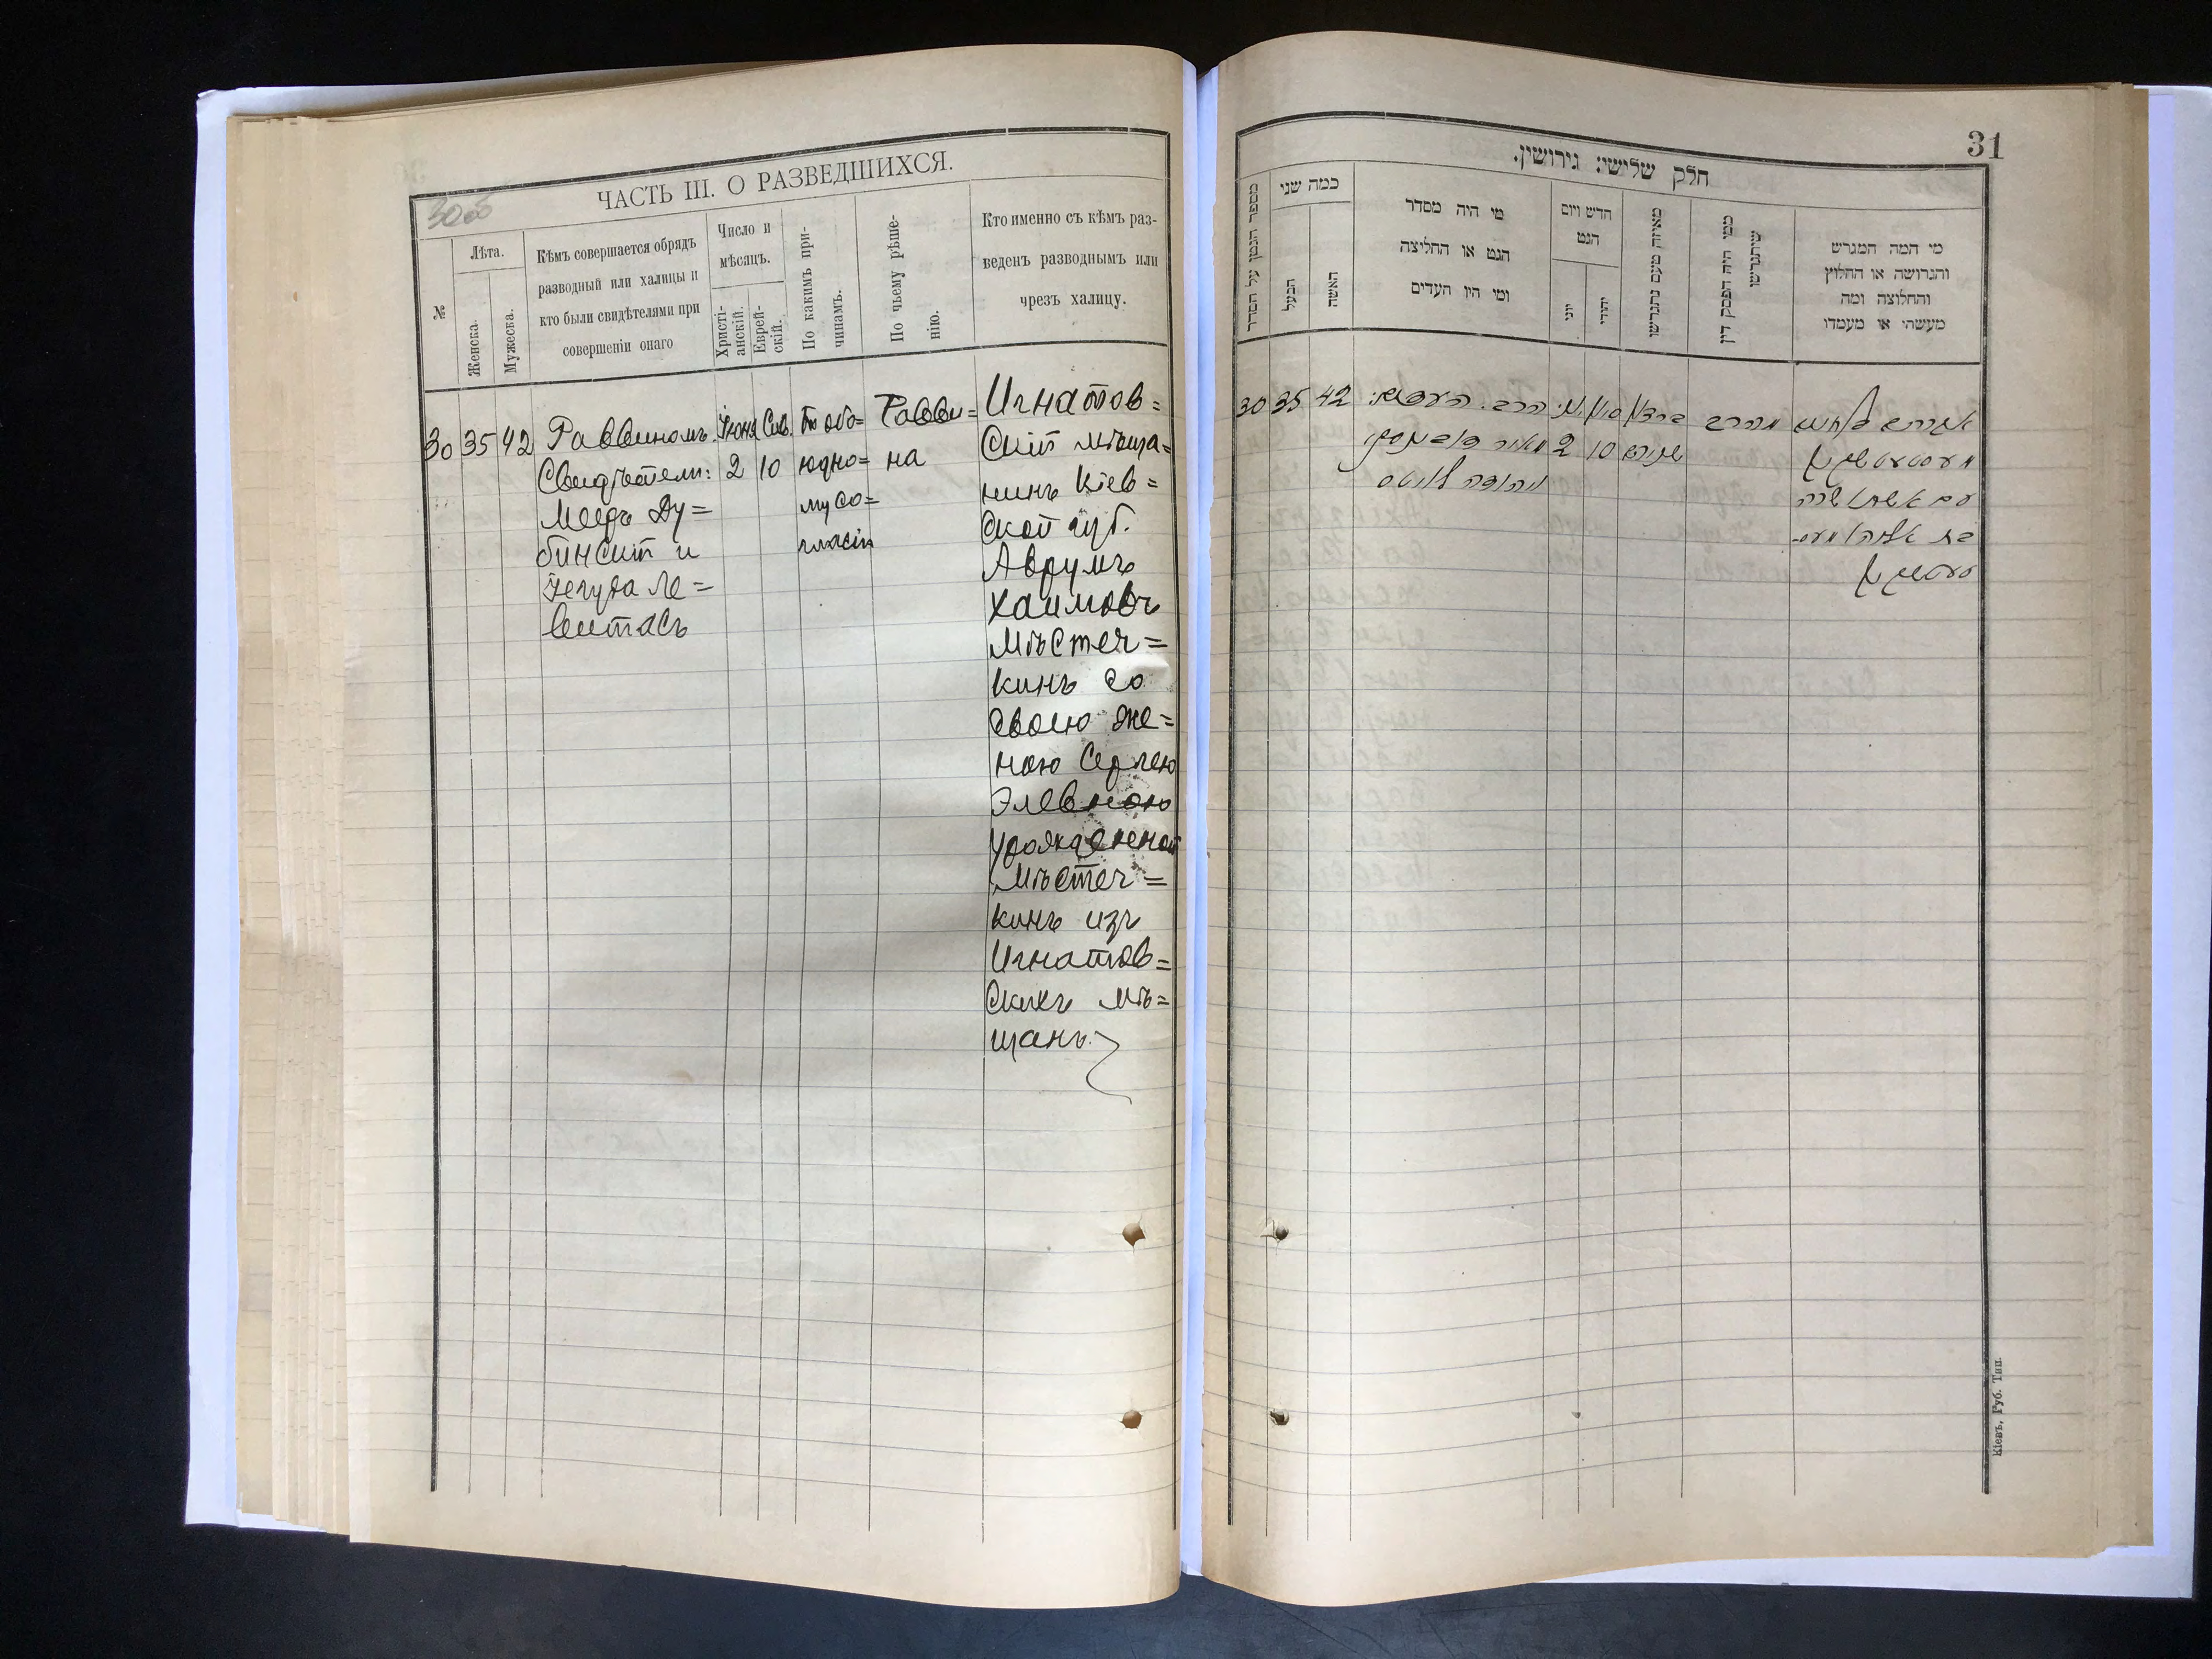 30об
ЧАСТЬ III. О РАЗВЕДШИХСЯ.
№
Лѣта.
Женска.
Мужеска.
Кѣмъ совершается обрядъ
разводный или халицы и
кто были свидѣтелями при
совершеніи онаго
Число и
мѣсяцъ.
Христі-
анскій.
Еврей-
скій.
По какимъ при-
чинамъ.
По чьему рѣше-
нію.
Кто именно съ кѣмъ раз-
веденъ разводнымъ или
чрезъ халицу.
30
35
42
Раввиномъ.
Свидѣтели:
Мееръ Ду=
бинскій и
Іегуда Ле=
витасъ
Іюня
2
Сив.
10
По обо=
юдно=
му со=
гласію
Равви=
на
Игнатов=
скій мѣща=
нинъ Кіев=
ской губ.
Аврумъ
Хаимовъ
Мѣстеч=
кинъ со
своею же=
ною Серлею
Элевною
урожденной
Мѣстеч=
кинъ изъ
Игнатов=
скихъ мѣ=
щанъ.
31
חלק שלישי: גירושין.
מספר הגטין על הסדר
כמה שני
הבעל
האשה
מי היה מסדר
הגט או החליצה
ומי היו העדים
חדש ויום
הגט
יוני
יהודי
מאיזה טעם נתגרשו
ממי היה הפסק דין
שיתגרשו
מי המה המגרש
והגרושה או החלוץ
והחלוצה ומה
מעשהי או מעמדו
30
35
42
הרב.
2
10
מהרב
עם אשתו שרה
Кіевъ, Губ. Тип.